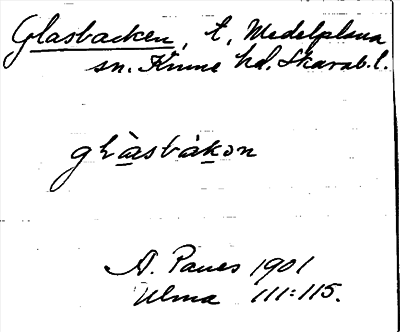 Glasbacken, t. Medelplana
sn. Kinne hd. Skarab. l.
glàsbàkon
A. Paues 1901
Ulma 111:115.